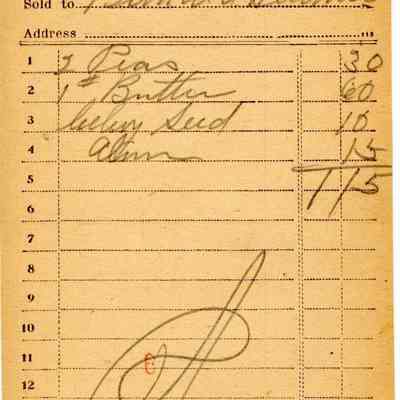 Sold to
Address
1 2 Peas 30
2 1# Butter 60
3 Celery Seed 10
4 Alum 15
5 1 15
6
7
8
9
10
11
12